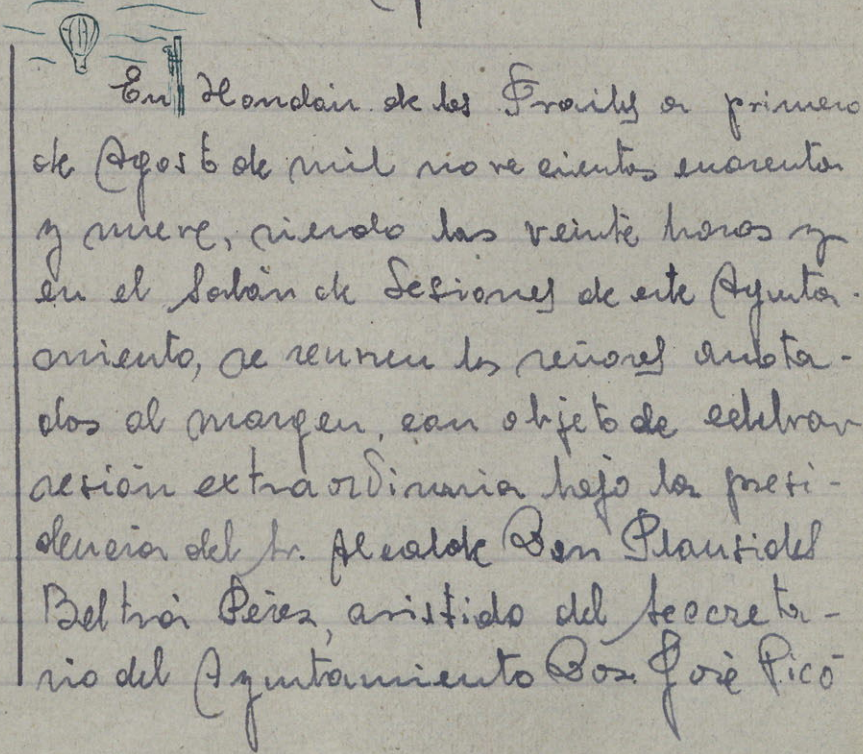 En Hondón de los Frailes a primero
de Agosto de mil novecientos cuarenta
y nueve, siendo las veinte horas y
en el Salón de Sesiones de este Ayunta-
miento, se reunen los señores anota-
dos al margen, con objeto de celebrar
sesión extraordinaria bajo la presi-
dencia del Sr. Alcalde Don Plausides
Beltrá Pérez, asistido del Secreta-
rio del Ayuntamiento Don José Picó